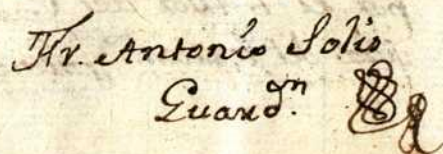 Fr. Antonio Solis
Guard.n